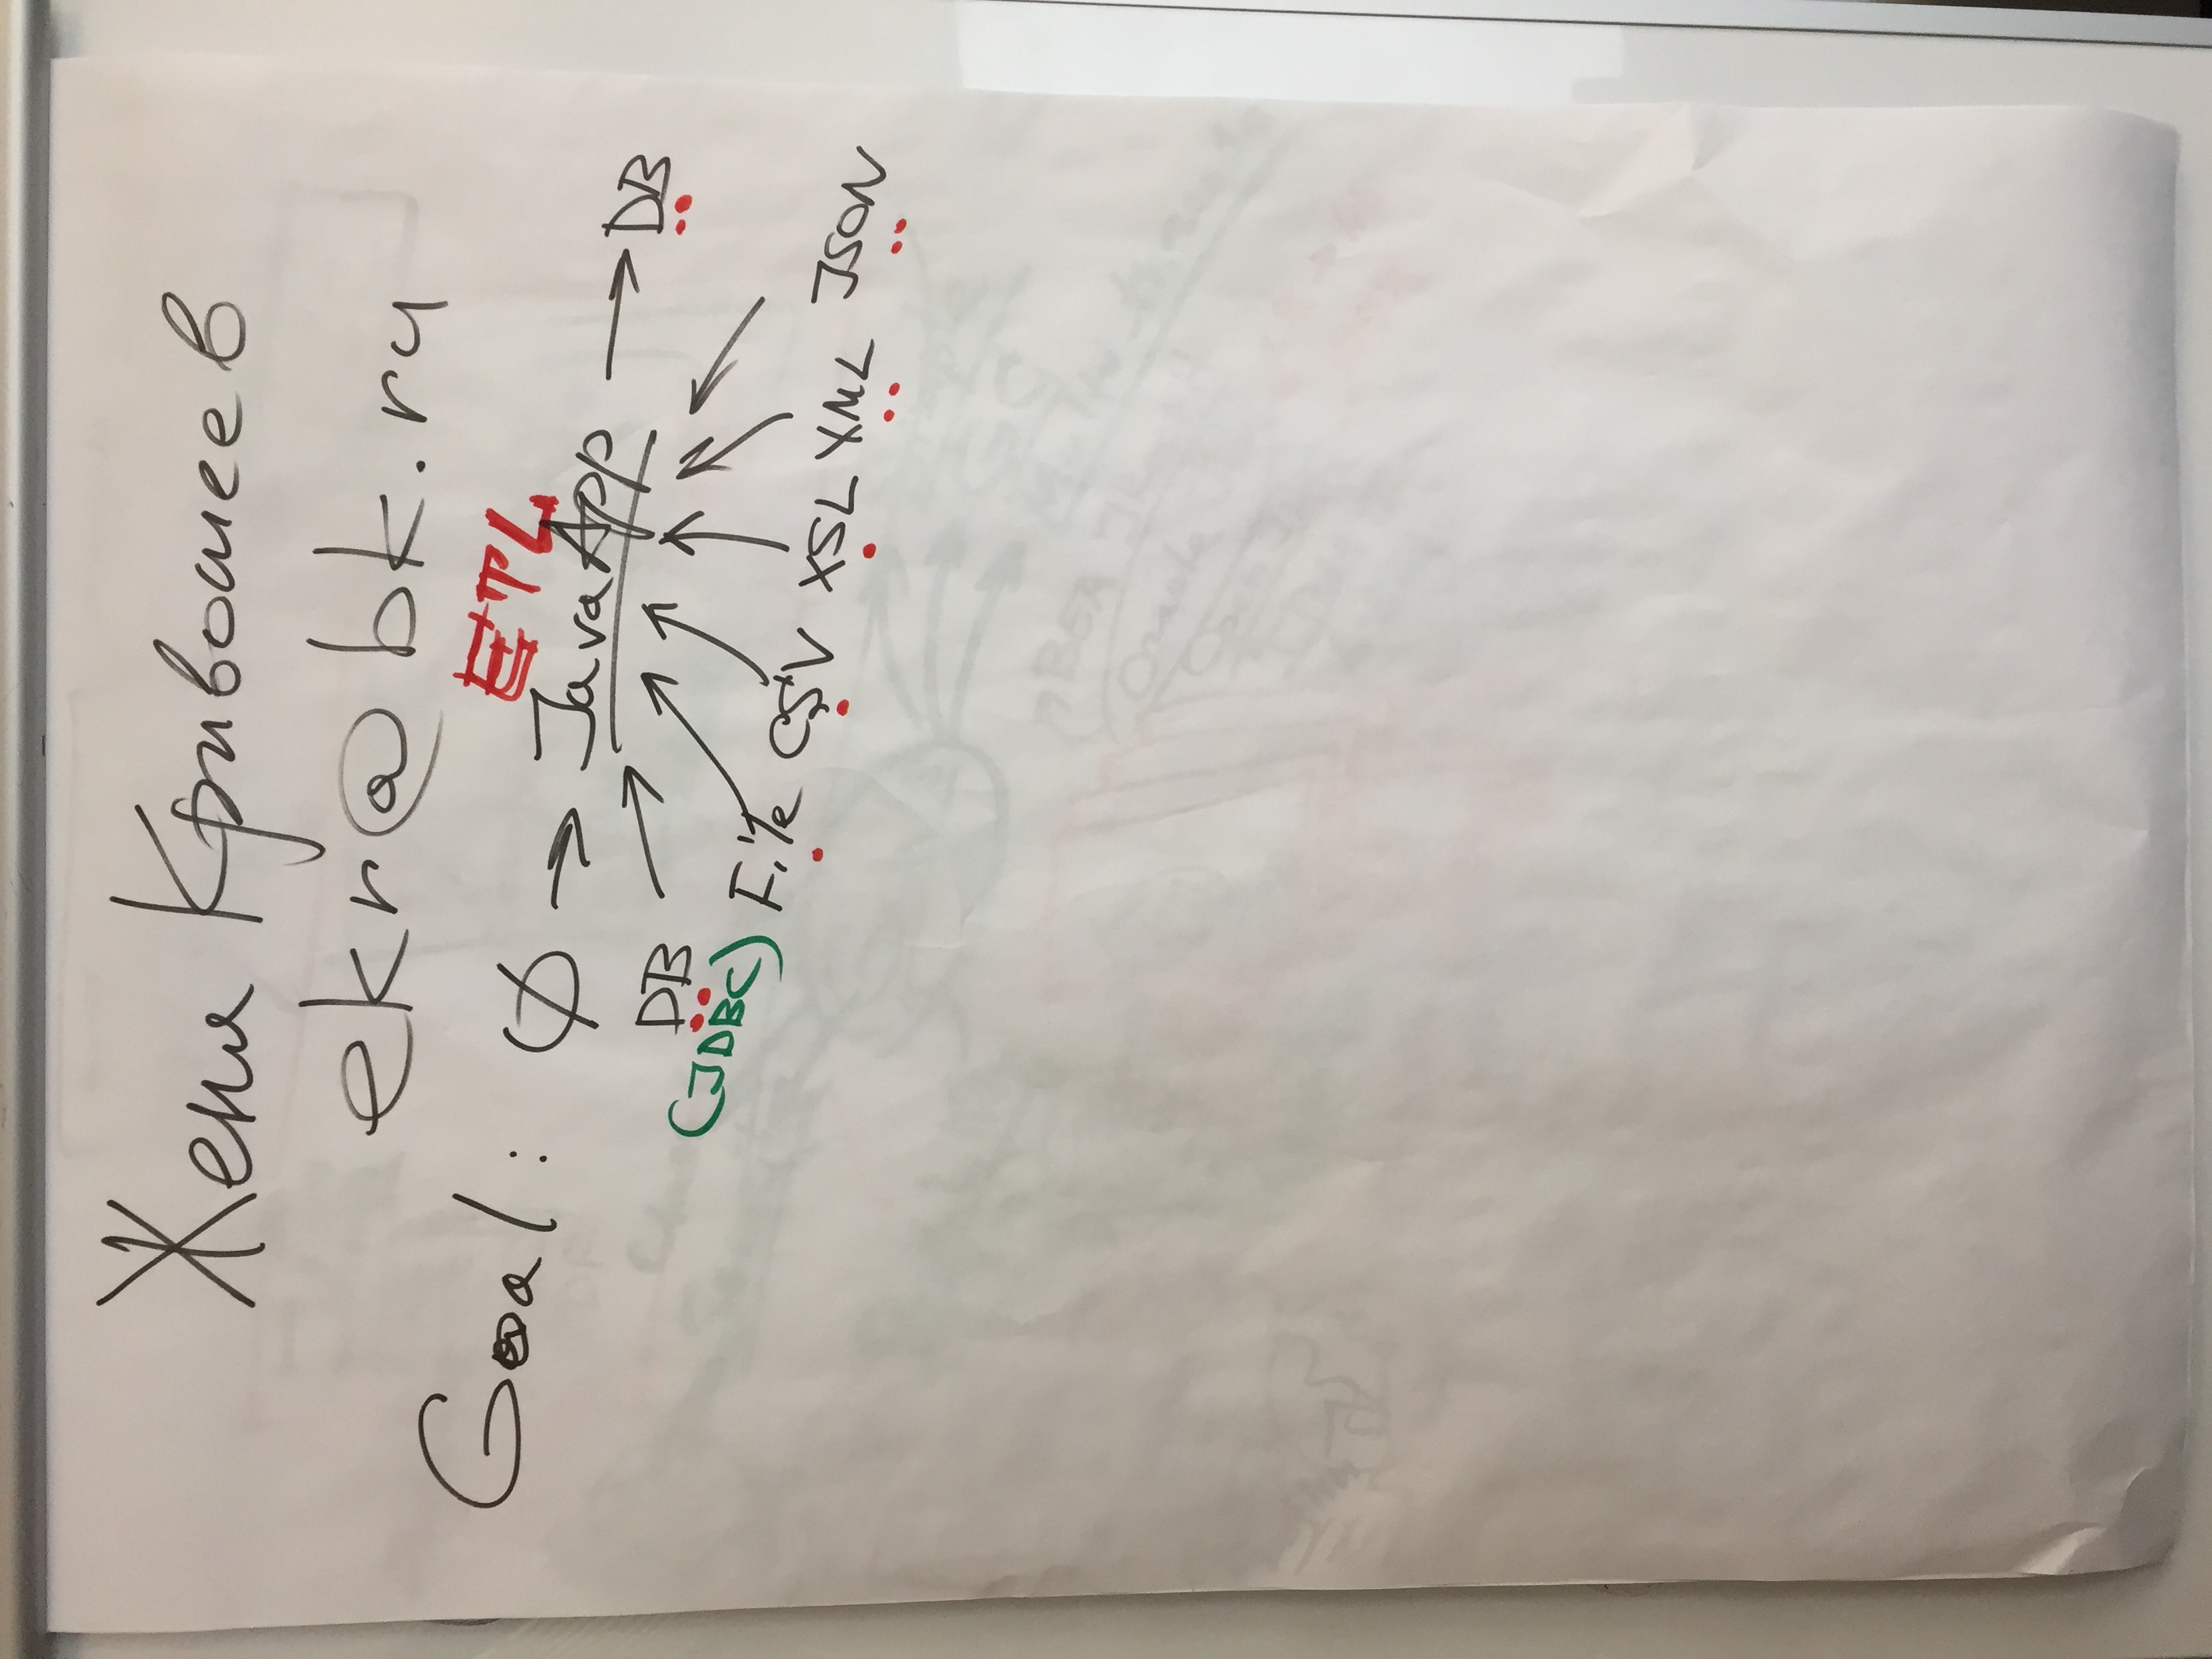 Женя Кривошеев
ekr@bk.ru
Goal: Ø → Java App → DB
ETL
DB
(JDBC)
File CSV XSL XML JSON